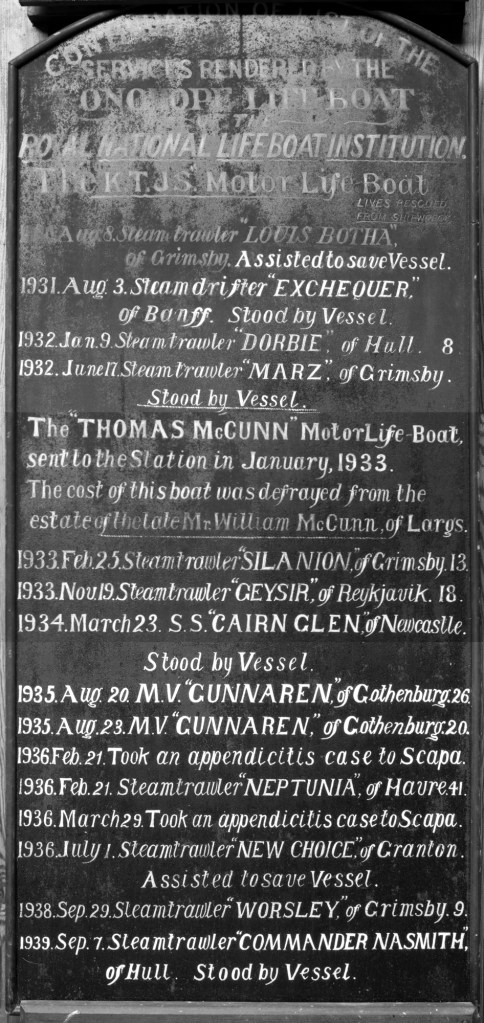 CONTINUATION OF LIST OF THE
SERVICES RENDERED BY THE
LIFE BOAT
OF THE
ROYAL NATIONAL LIFEBOAT INSTITUTION.
The K.T.J.S. Motor Life-Boat
LIVES RESCUED
FROM SHIPWRECK
Aug 8. Steam trawler "LOUIS BOTHA",
of Grimsby. Assisted to save Vessel.
1931. Aug 3. Steam drifter "EXCHEQUER,"
of Banff. Stood by Vessel.
1932. Jan. 9. Steam trawler "DORBIE", of Hull. 8
1932. June 17. Steam trawler "MARZ", of Grimsby.
Stood by Vessel.
The "THOMAS McCUNN" Motor Life-Boat,
sent to the Station in January, 1933.
The cost of this boat was defrayed from the
estate of the late Mr. William McCunn, of Largs.
1933. Feb. 25. Steam trawler "SILANION", of Grimsby. 13.
1933. Nov. 19. Steam trawler "GEYSIR", of Reykjavik. 18.
1934. March 23. S.S. "CAIRN GLEN," of Newcastle.
Stood by Vessel.
1935. Aug. 20. M.V. "GUNNAREN," of Gothenburg. 26.
1935. Aug. 23. M.V. "GUNNAREN," of Gothenburg. 20.
1936 Feb. 21. Took an appendicitis case to Scapa.
1936. Feb. 21. Steam trawler "NEPTUNIA", of Havre. 41.
1936. March 29. Took an appendicitis case to Scapa.
1936. July 1. Steam trawler "NEW CHOICE", of Granton.
Assisted to save Vessel.
1938. Sep. 29. Steam trawler "WORSLEY," of Grimsby. 9.
1939. Sep. 7. Steam trawler "COMMANDER NASMITH",
of Hull. Stood by Vessel.